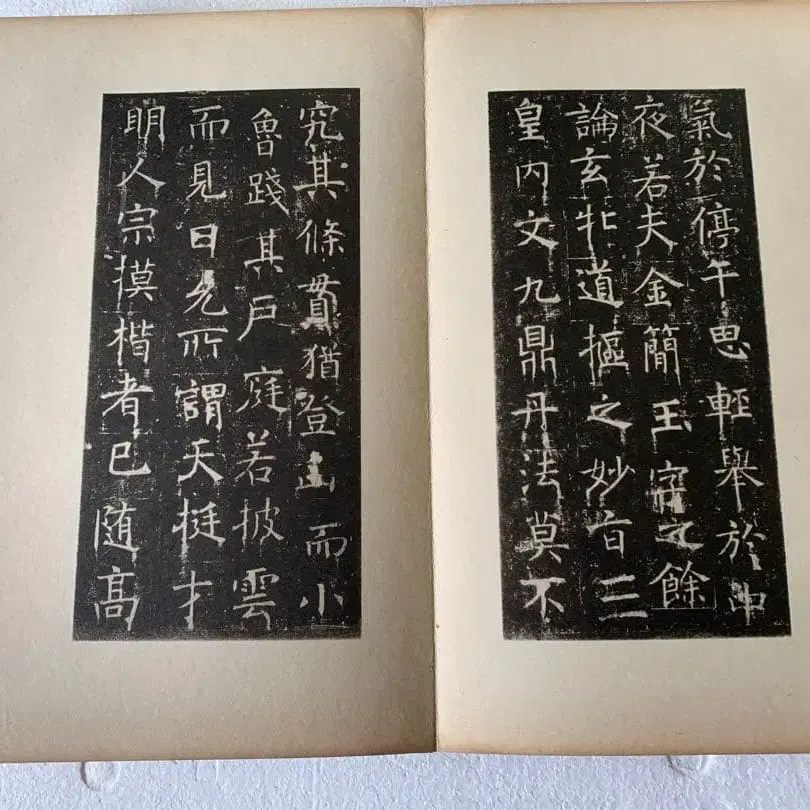 氣於停午思輕舉於中
夜若夫金簡玉字之餘
論玄牝道樞之妙旨三
皇內文九鼎丹法莫不
究其條貫猶登山而小
魯踐其戶庭若披雲
而見日允所謂天挺才
明人宗摸楷者巳随高